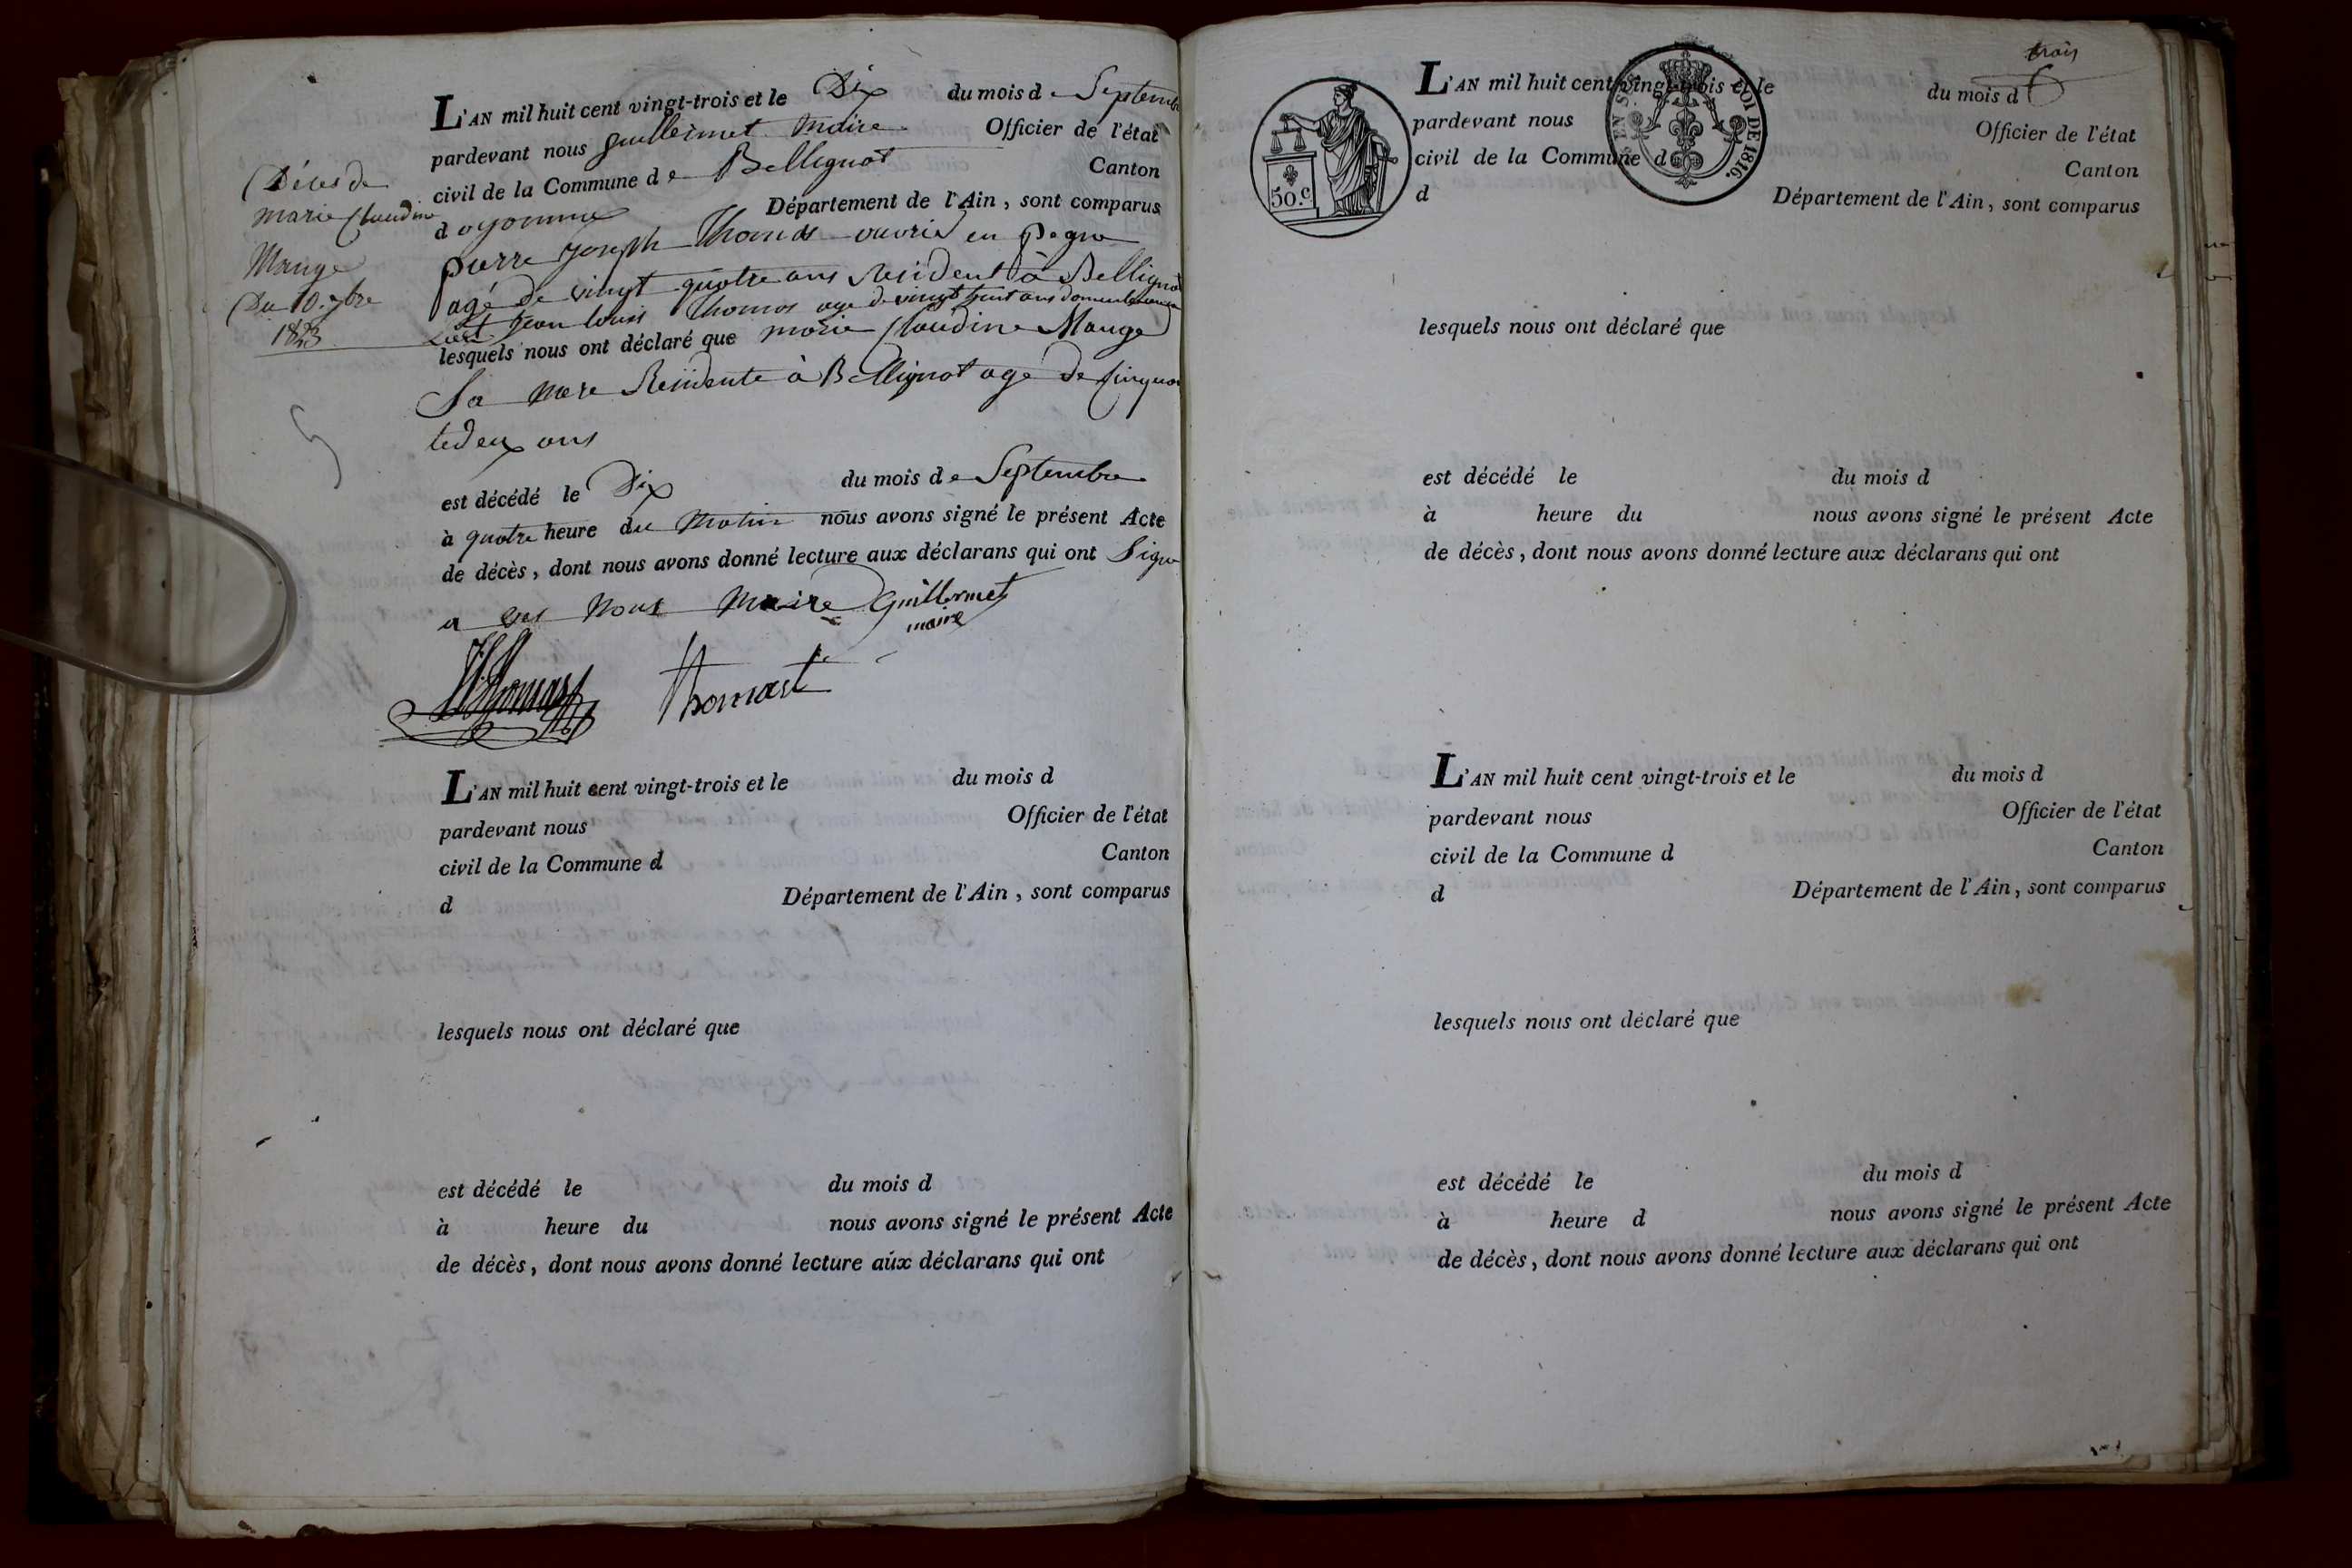 Décès de
marie Claudine
Mange
Du 10. 7bre
1823
L'AN mil huit cent vingt-trois et le Dix du mois de Septembre
pardevant nous guillermet Maire Officier de l'état
civil de la Commune de Bellignat Canton
d'oyonna Département de l'Ain, sont comparus
pierre joseph Thomas ouvrié en pegne
agé de vingt quatre ans Resident à Bellignat
et jean louis Thomas age de vingt huit ans
lesquels nous ont déclaré que marie Claudine Mange
Sa mere Residente à Bellignat age de Cinquan
tedeux ans
est décédé le Dix du mois de Septembre
à quatre heure du Matin nous avons signé le présent Acte
de décès, dont nous avons donné lecture aux déclarans qui ont Signe
a nous Maire Guillermet
maire
Thomas
thomast
L'AN mil huit cent vingt-trois et le du mois d
pardevant nous Officier de l'état
civil de la Commune d Canton
d Département de l'Ain, sont comparus
lesquels nous ont déclaré que
est décédé le du mois d
à heure du nous avons signé le présent Acte
de décès, dont nous avons donné lecture aux déclarans qui ont
trois
50.c
EN SUS LOI DE 1816.
L'AN mil huit cent vingt-trois et le du mois d
pardevant nous Officier de l'état
civil de la Commune d Canton
d Département de l'Ain, sont comparus
lesquels nous ont déclaré que
est décédé le du mois d
à heure du nous avons signé le présent Acte
de décès, dont nous avons donné lecture aux déclarans qui ont
L'AN mil huit cent vingt-trois et le du mois d
pardevant nous Officier de l'état
civil de la Commune d Canton
d Département de l'Ain, sont comparus
lesquels nous ont déclaré que
est décédé le du mois d
à heure d nous avons signé le présent Acte
de décès, dont nous avons donné lecture aux déclarans qui ont